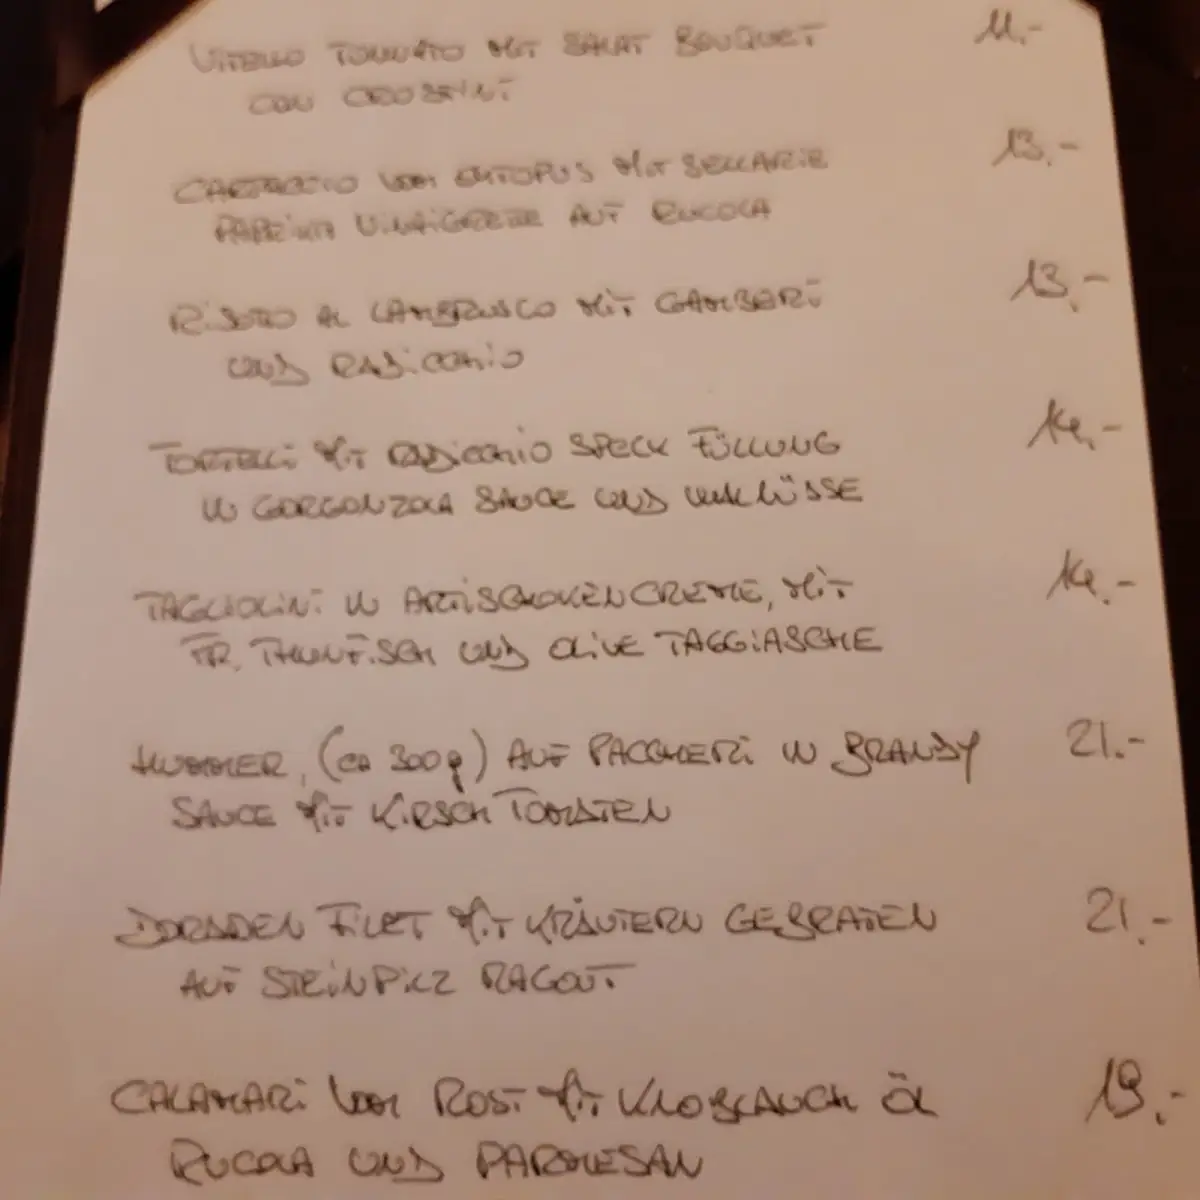 VITELLO TONNATO MIT SALAT BOUQUET 11.-
CON CROSTINI
CARPACCIO VOM OKTOPUS MIT SELLARIE 13.-
PAPRIKA VINAIGRETTE AUF RUCOLA
RISOTTO AL LAMBRUSCO MIT GAMBERI 13.-
UND RADICCHIO
TORTELLI MIT RADICCHIO SPECK FÜLLUNG 14.-
IN GORGONZOLA SAUCE UND WALNÜSSE
TAGLIOLINI IN ARTISCHOKEN CREME, MIT 14.-
FR. THUNFISCH UND OLIVE TAGGIASCHE
HUMMER, (ca 300g) AUF PACCHERI IN BRANDY 21.-
SAUCE MIT KIRSCH TOMATEN
DORADEN FILET MIT KRÄUTERN GEBRATEN 21.-
AUF STEINPILZ RAGOUT
CALAMARI VOM ROST MIT KNOBLAUCH ÖL 19.-
RUCOLA UND PARMESAN